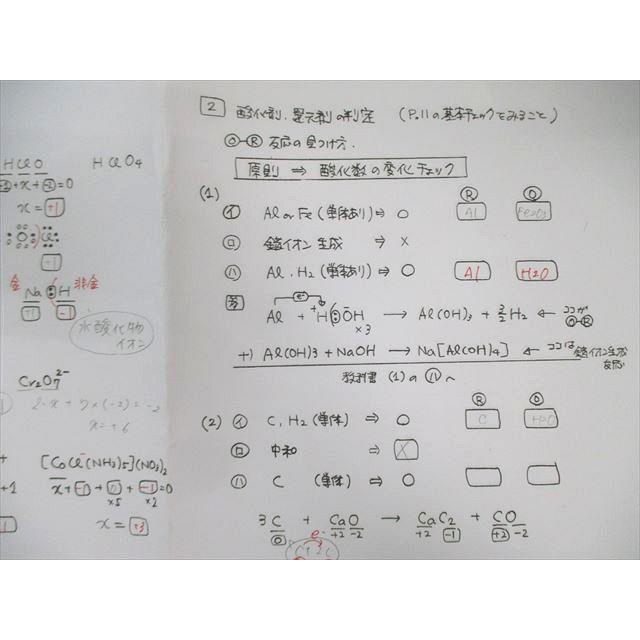 HClO HClO₄
+1+x+-2=0
x=+1
+1
金 Na:H 非金
+1 -1
水酸化物イオン
Cr₂O₇²⁻
2×x+7×(-2)=-2
x=+6
[CoCl(NH₃)₅](NO₃)₂
x+-1+0+-1=0
×5 ×2
x=+3
2 酸化剤、還元剤の判定 (P.11の基本チェックをみること)
Ⓞ-Ⓡ 反応の見つけ方.
原則 ⇒ 酸化数の変化チェック
(1) Ⓡ Ⓞ
イ Al or Fe (単体あり) ⇒ ○ Al Fe₂O₃
ロ 錯イオン生成 ⇒ ×
ハ Al、H₂ (単体あり) ⇒ ○ Al H₂O
参 e⁻
Al + ⁺H:⁻OH ×3 → Al(OH)₃ + 3/2 H₂ ← ココが Ⓞ-Ⓡ
+) Al(OH)₃ + NaOH → Na[Al(OH)₄] ← ココは錯イオン生成反応
教科書 (1) の ハ へ
Ⓡ Ⓞ
(2) イ C、H₂ (単体) ⇒ ○ C H₂O
ロ 中和 ⇒ ×
ハ C (単体) ⇒ ○
3C + CaO → CaC₂ + CO
0 +2 -2 +2 -1 +2 -2
e⁻